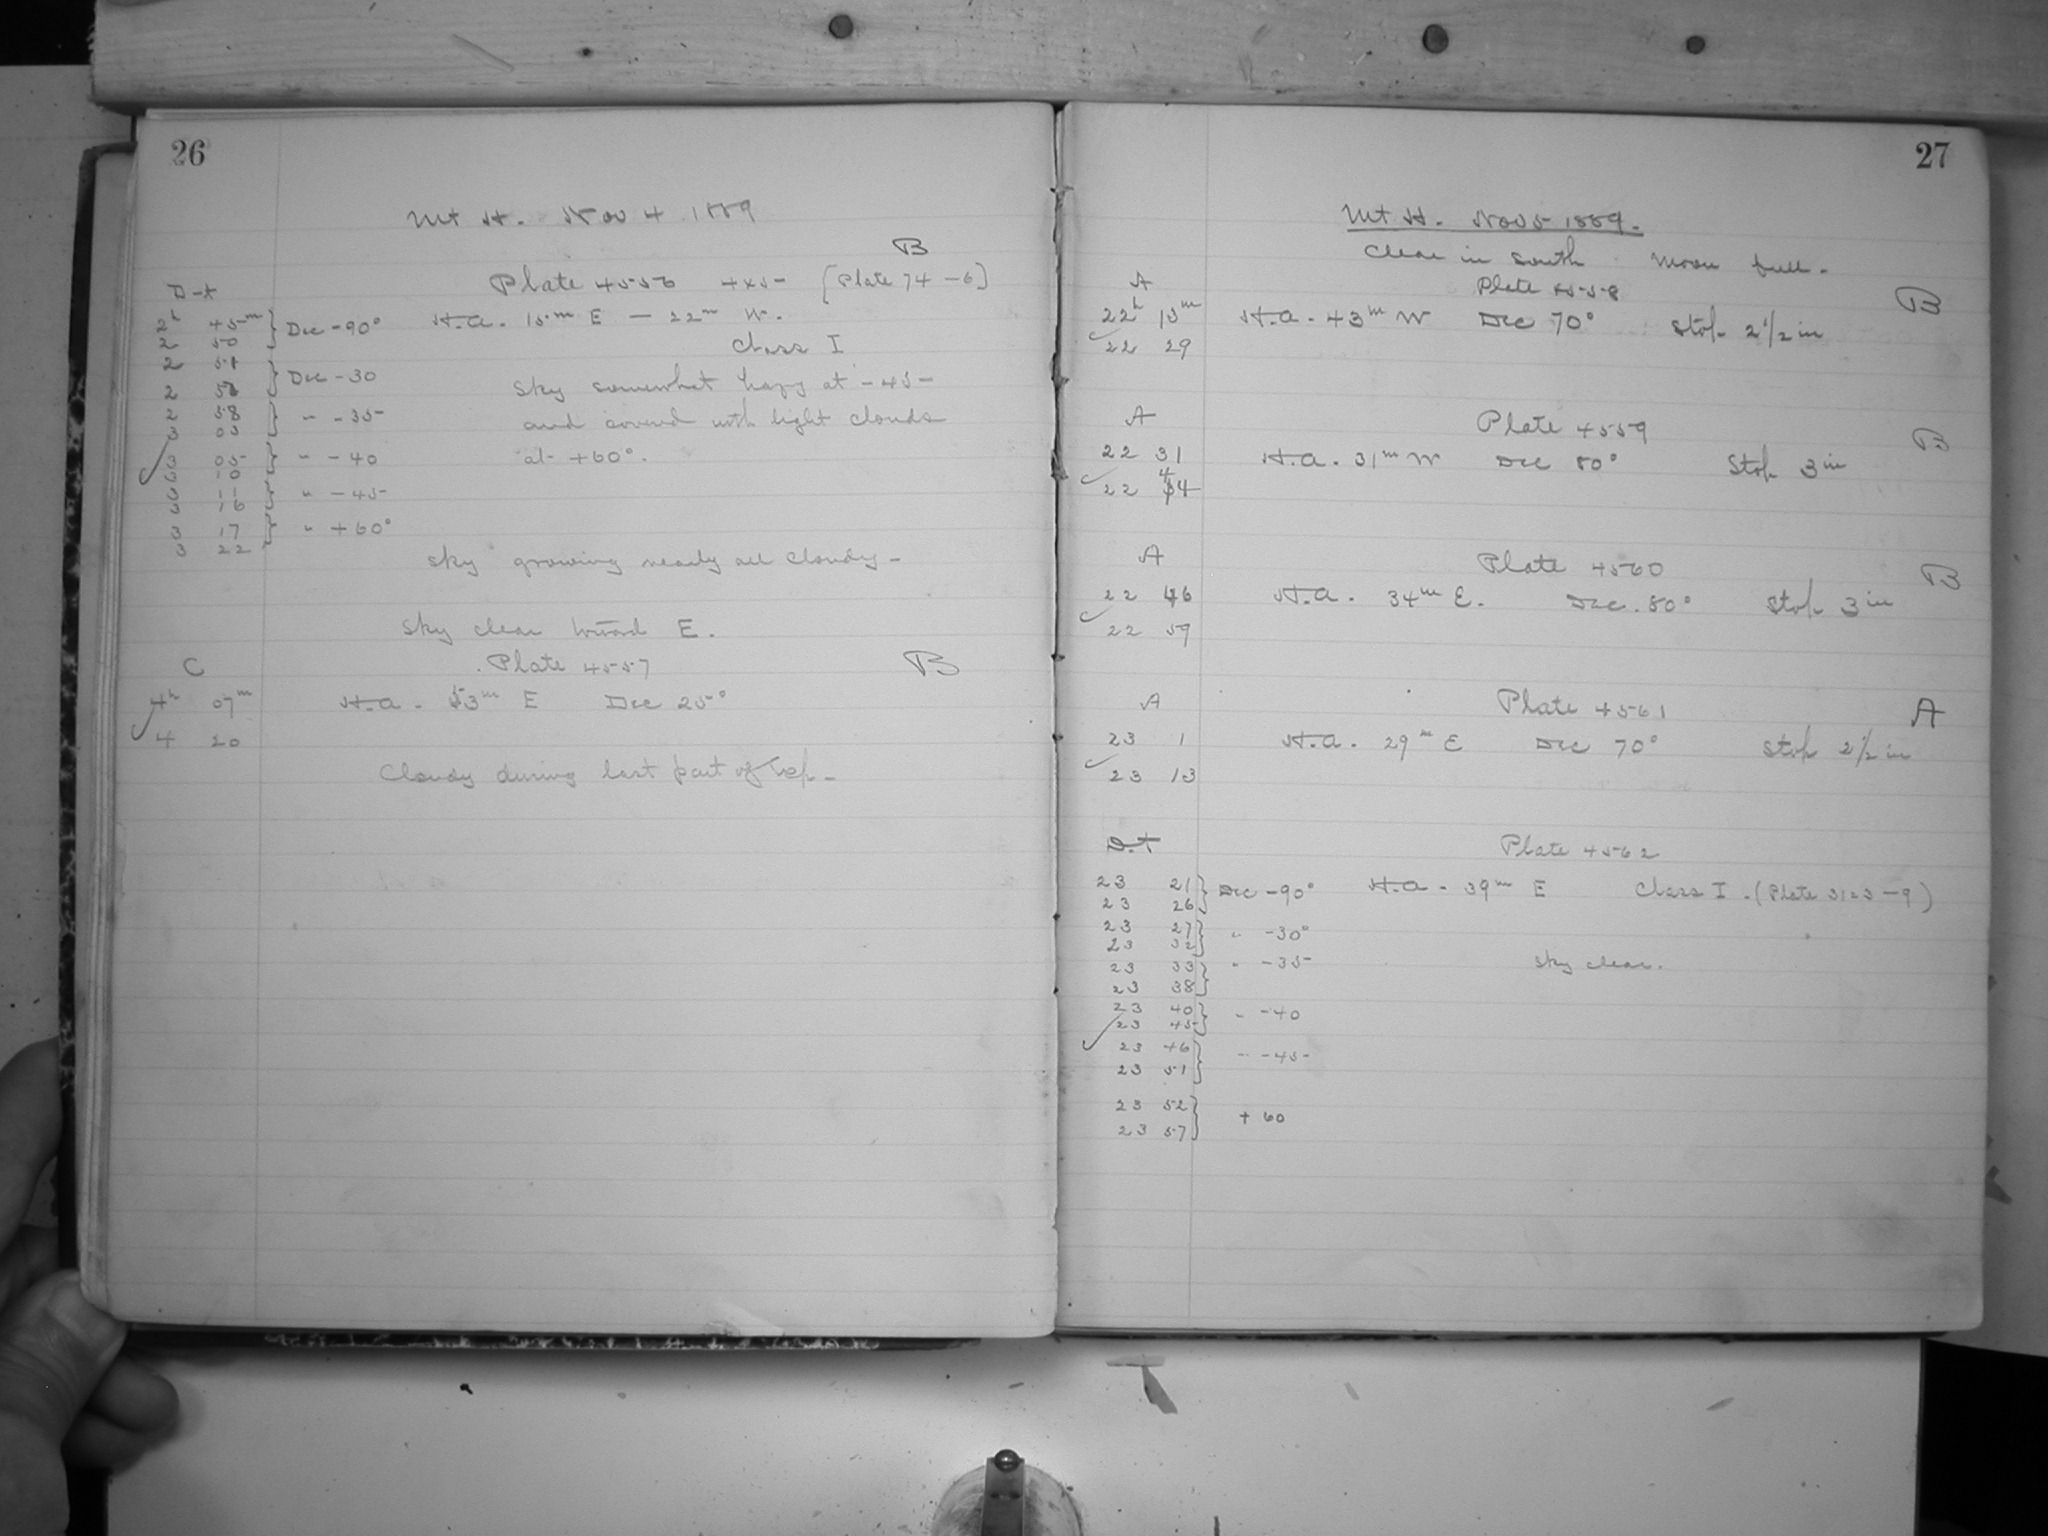 26
Mt H. Nov 4 1889
B
D-t Plate 4556 4x5 [Plate 74-6]
2h 45m } Dec -90° H.A. 15m E - 22m W.
2 50
Class I
2 51 } Dec -30
2 56
Sky somewhat hazy at -45
2 58 } " -35
3 03
and covered with light clouds
3 05 } " -40
3 10
at +60°.
3 11 } " -45
3 16
3 17 } " +60°
3 22
Sky growing nearly all cloudy -
Sky clear toward E.
C Plate 4557 B
4h 07m H.A. 53m E Dec 25°
4 20
Cloudy during last part of exp.
27
Mt H. Nov 5 1889.
Clear in south. Moon full.
A Plate 4558 B
22h 15m H.A. 43m W Dec 70° Stop 2 1/2 in
22 29
A Plate 4559 B
22 31 H.A. 31m W Dec 80° Stop 3 in
22 44
A Plate 4560 B
22 46 H.A. 34m E. Dec. 80° Stop 3 in
22 59
A Plate 4561 A
23 1 H.A. 29m E Dec 70° Stop 2 1/2 in
23 13
D.T Plate 4562
23 21 } Dec -90° H.A. 39m E Class I. (Plate 3123-9)
23 26
23 27 } " -30°
23 32
23 33 } " -35
23 38
Sky clear.
23 40 } " -40
23 45
23 46 } " -45
23 51
23 52 } +60
23 57